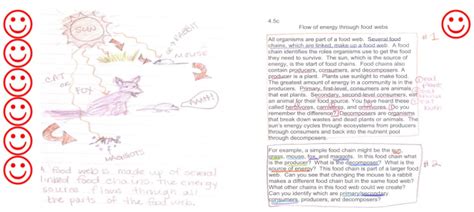 SUN
MOUSE
CAT
OR
FOX
MAGGOTS
A food web is made up of several
linked food chains the energy
source flows through all
the parts of the food web.
4.5c
Flow of energy through food webs
# 1
All organisms are part of a food web. Several food
chains, which are linked, make up a food web. A food
chain identifies the roles organisms use to get the food
they need to survive. The sun, which is the source of
energy, is the start of food chains. Food chains also
contain producers, consumers, and decomposers. A
producer is a plant. Plants use sunlight to make food.
The greatest amount of energy in a community is in the
producers. Primary, first-level, consumers are animals
that eat plants. Secondary, second-level consumers, eat
an animal for their food source. You have heard these
called herbivores, carnivores, and omnivores. Do you
remember the difference? Decomposers are organisms
that break down wastes and dead plants or animals. The
sun's energy cycles through ecosystems from producers
through consumers and back into the nutrient pool
through decomposers.
# 2
For example, a simple food chain might be the sun,
grass, mouse, fox, and maggots. In this food chain what
is the producer? What is the decomposer? What is the
source of energy? This food chain is part of a larger food
web. Can you see that changing the mouse to a rabbit
makes a different food chain but in the same food web?
What other chains in this food web could we create?
Can you identify which are primary/secondary
consumers, producers, and decomposers?